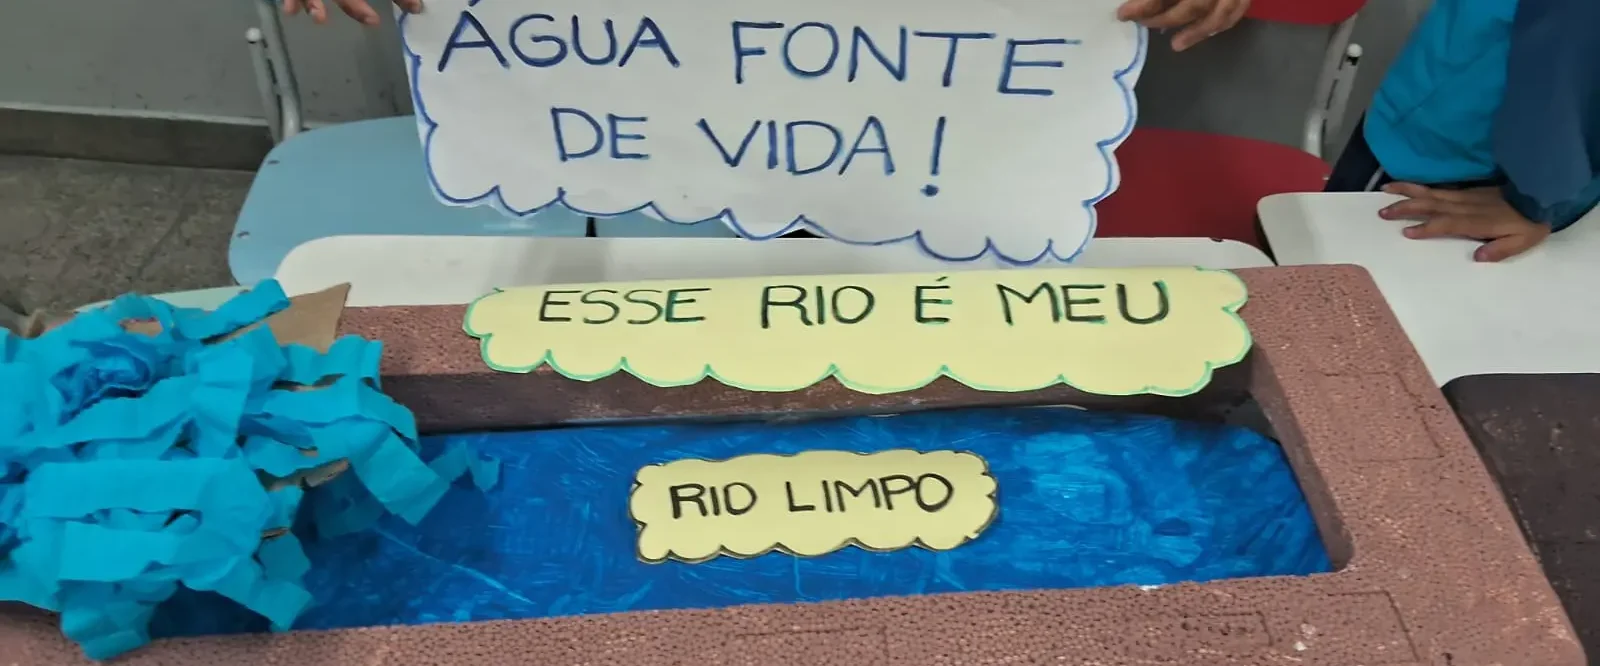 ÁGUA FONTE
DE VIDA!
ESSE RIO É MEU
RIO LIMPO